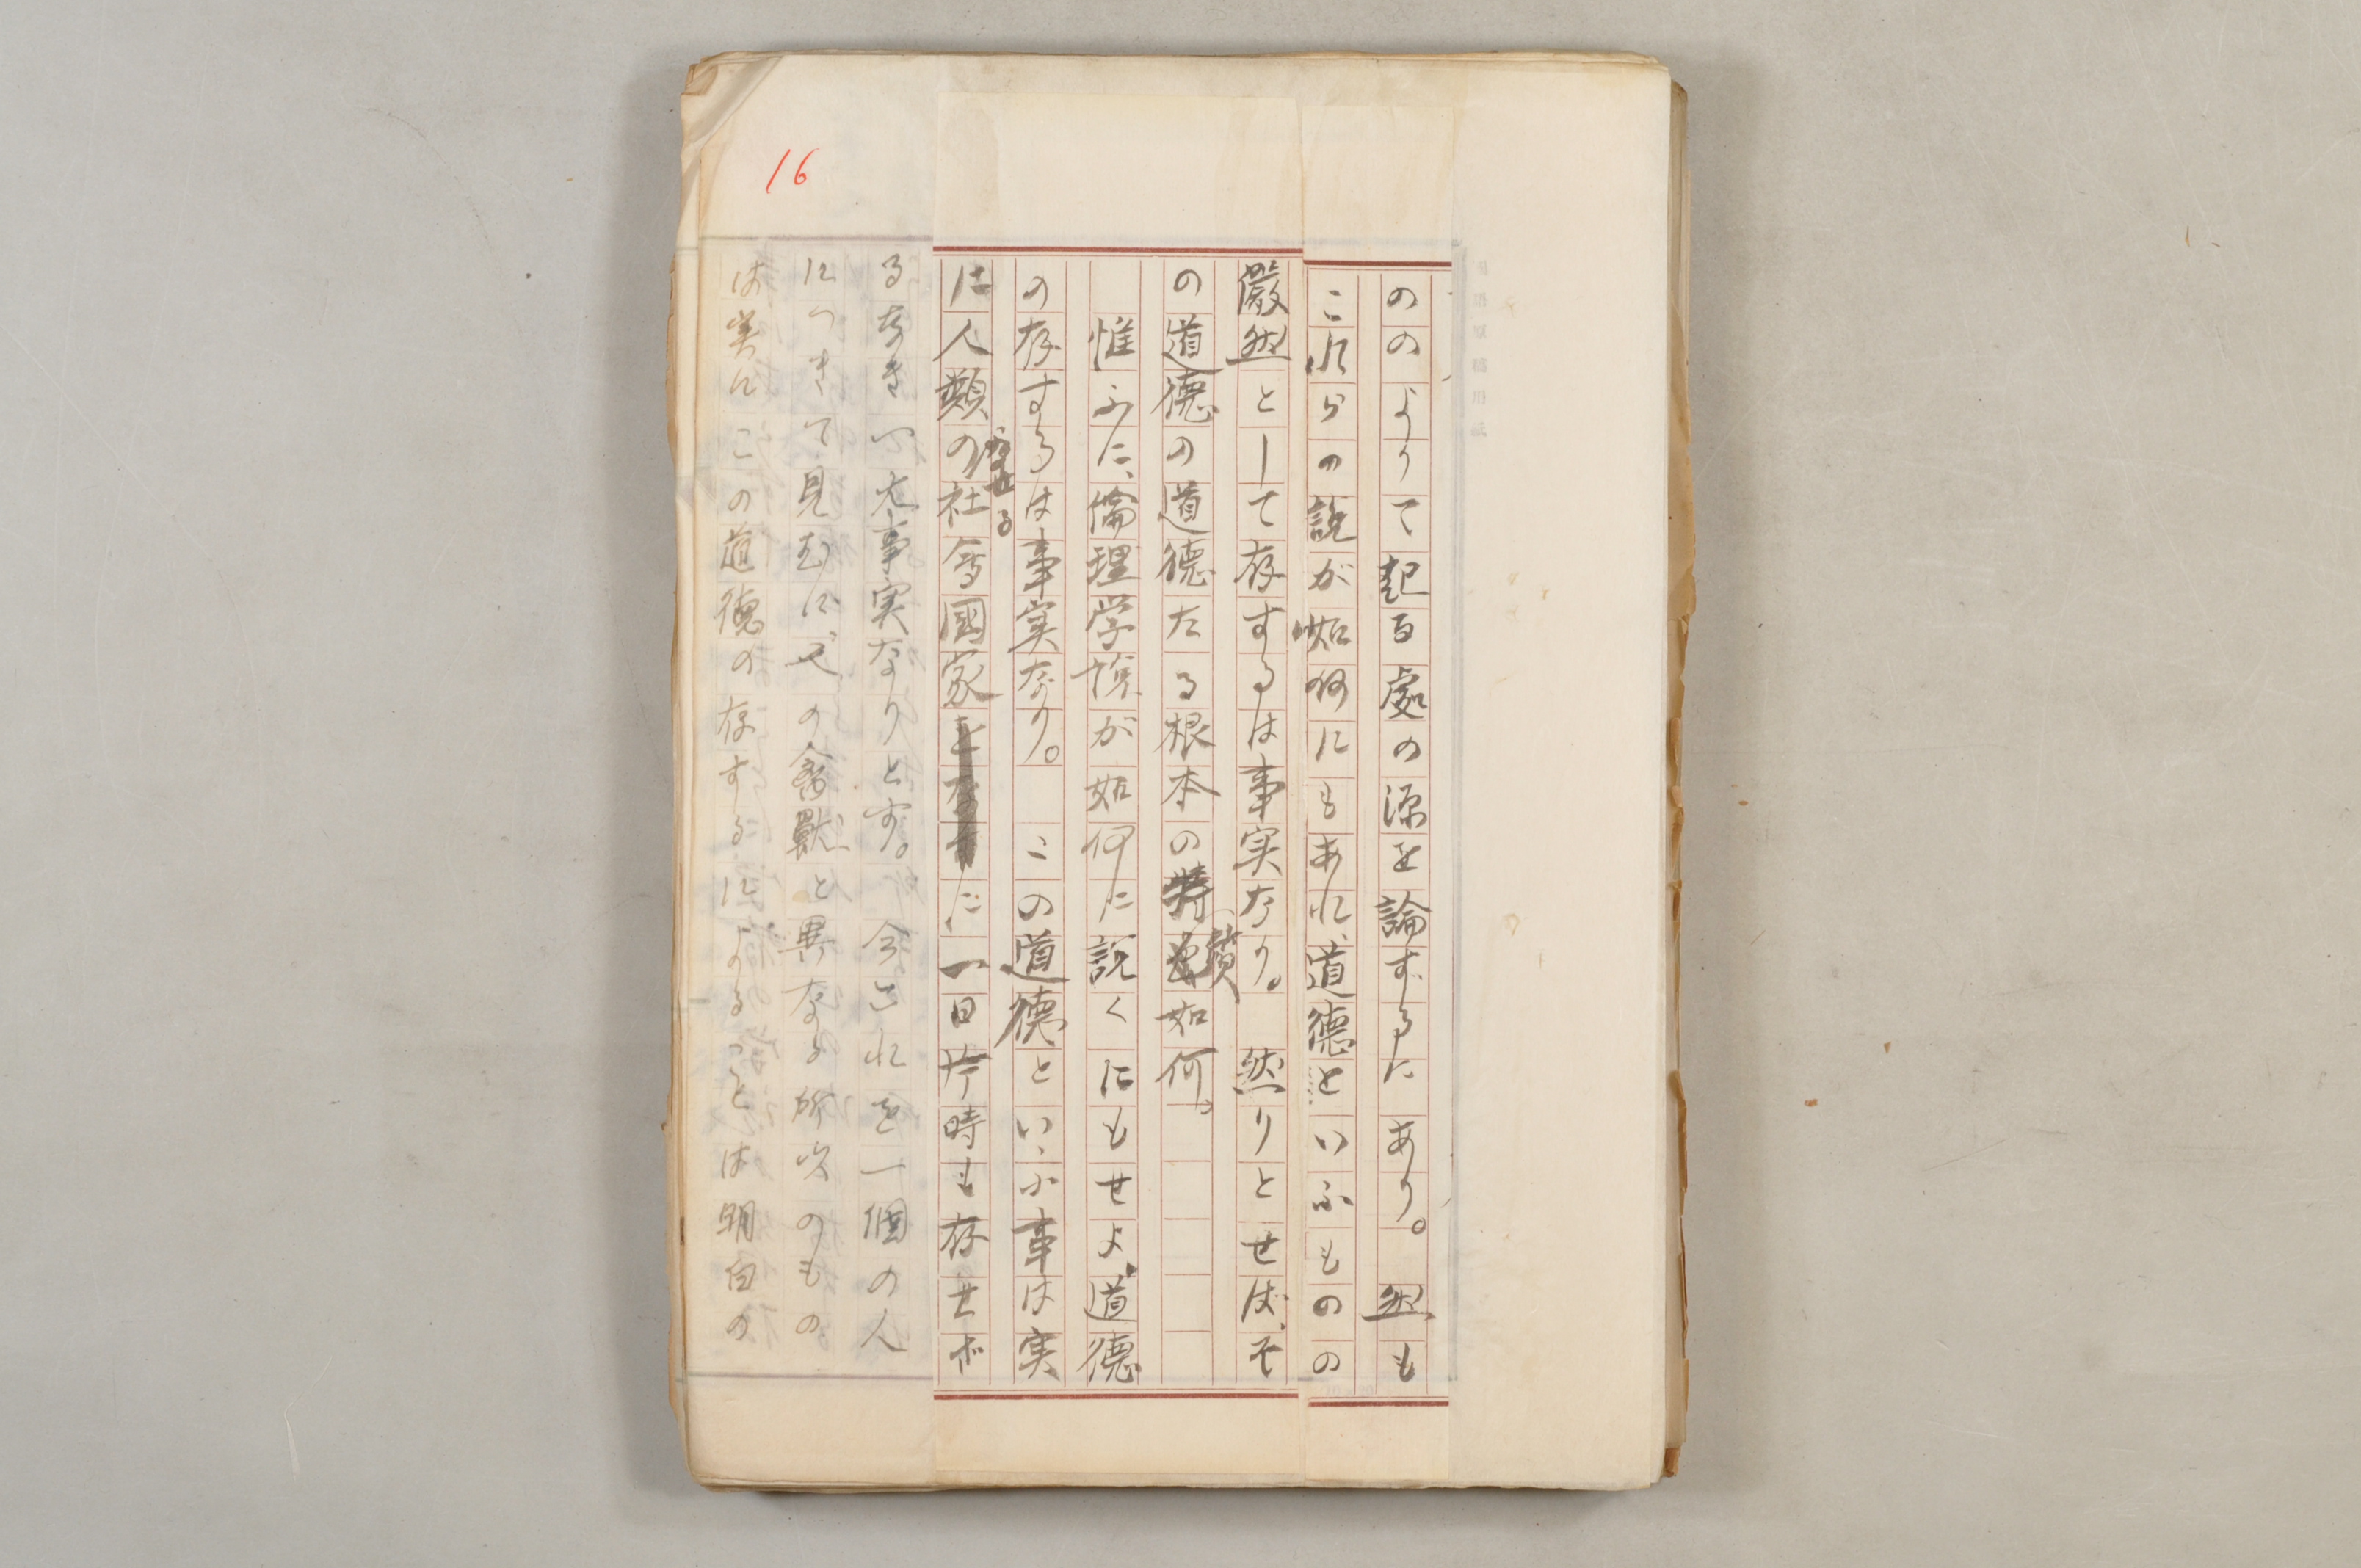 16
ののよりて起る處の源を論ずるにあり。 然も
これらの説が如何にもあれ、道徳といふものの
嚴然として存するは事実なり。 然りとせば、そ
の道徳の道徳たる根本の特質如何。
惟ふに、倫理学説が如何に説くにもせよ、道徳
の存するは事実なり。 この道徳といふ事は実
に人類の社会國家に一日片時も存せざ
るなき一大事実なりとす。 今これを一個の人
につきて見むに、その禽獸と異なる所以のもの
は実にこの道徳の存するによることは明白の